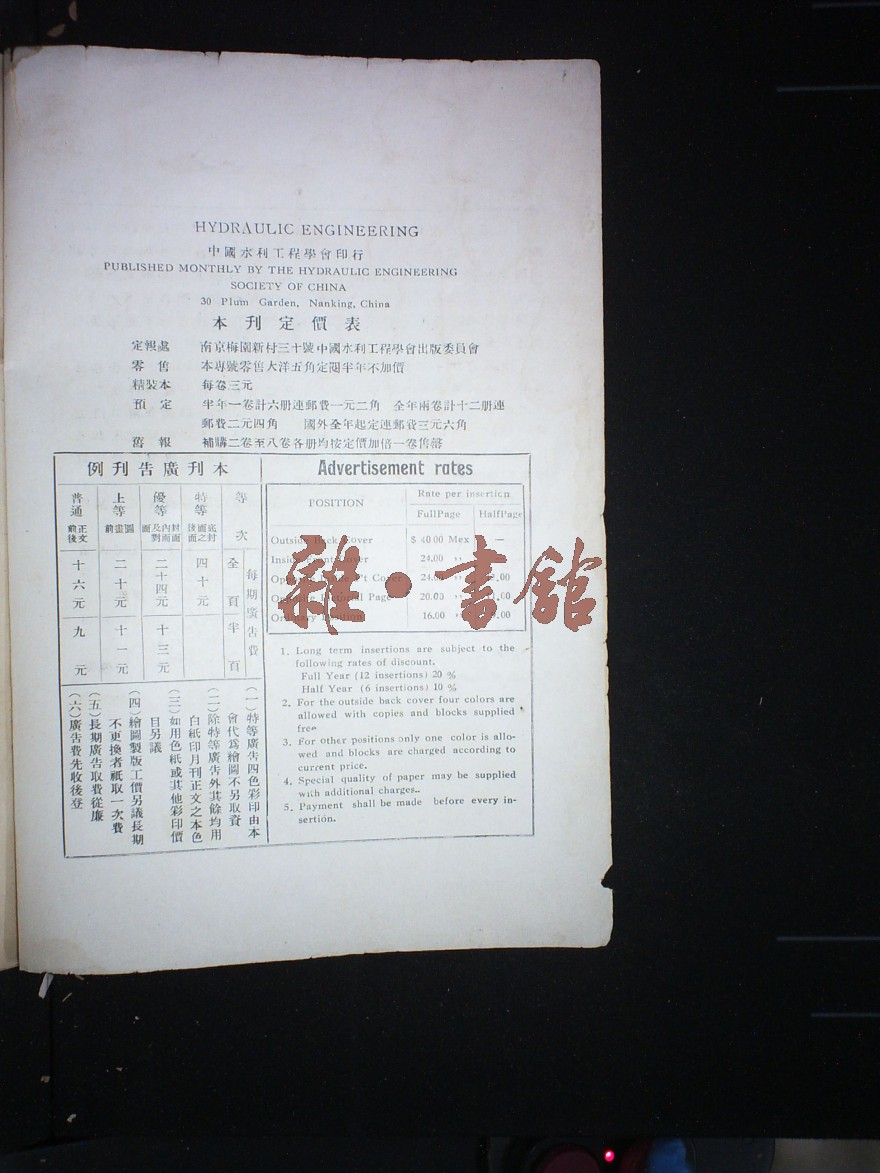 HYDRAULIC ENGINEERING
中國水利工程學會印行
PUBLISHED MONTHLY BY THE HYDRAULIC ENGINEERING
SOCIETY OF CHINA
30 Plum Garden, Nanking, China
本刊定價表
定報處 南京梅園新村三十號中國水利工程學會出版委員會
零售 本專號零售大洋五角定閱半年不加價
精裝本 每卷三元
預定 半年一卷計六册連郵費一元二角 全年兩卷計十二册連
郵費二元四角 國外全年起定連郵費三元六角
舊報 補購二卷至八卷各册均按定價加倍一卷售罄
例刊告廣刊本
等次
特等 底封面之後面
優等 封面內面及對面
上等 圖畫前
普通 正文前後
每期廣告費
全頁 四十元 二十四元 二十元 十六元
半頁 十三元 十一元 九元
(一)特等廣告四色彩印由本
會代爲繪圖不另取資
(二)除特等廣告外其餘均用
白紙印月刊正文之本色
(三)如用色紙或其他彩印價
目另議
(四)繪圖製版工價另議長期
不更換者祇取一次費
(五)長期廣告取費從廉
(六)廣告費先收後登
Advertisement rates
POSITION
Rate per insertion
FullPage HalfPage
Outside Back Cover $ 40.00 Mex —
Inside Front Cover 24.00 ,,
24.00
20.00
Ordinary 16.00 ,,
1. Long term insertions are subject to the
following rates of discount.
Full Year (12 insertions) 20 %
Half Year (6 insertions) 10 %
2. For the outside back cover four colors are
allowed with copies and blocks supplied
free
3. For other positions only one color is allo-
wed and blocks are charged according to
current price.
4. Special quality of paper may be supplied
with additional charges..
5. Payment shall be made before every in-
sertión.
雜·書館